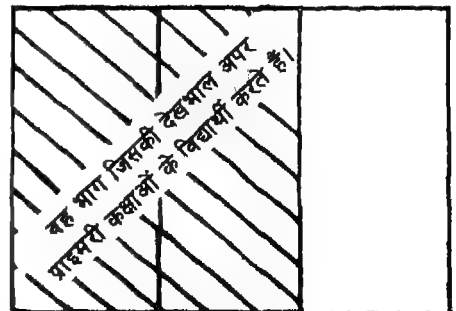 वह भाग जिसकी देखभाल अपर
प्राइमरी कक्षाओं के विद्यार्थी करते हैं।